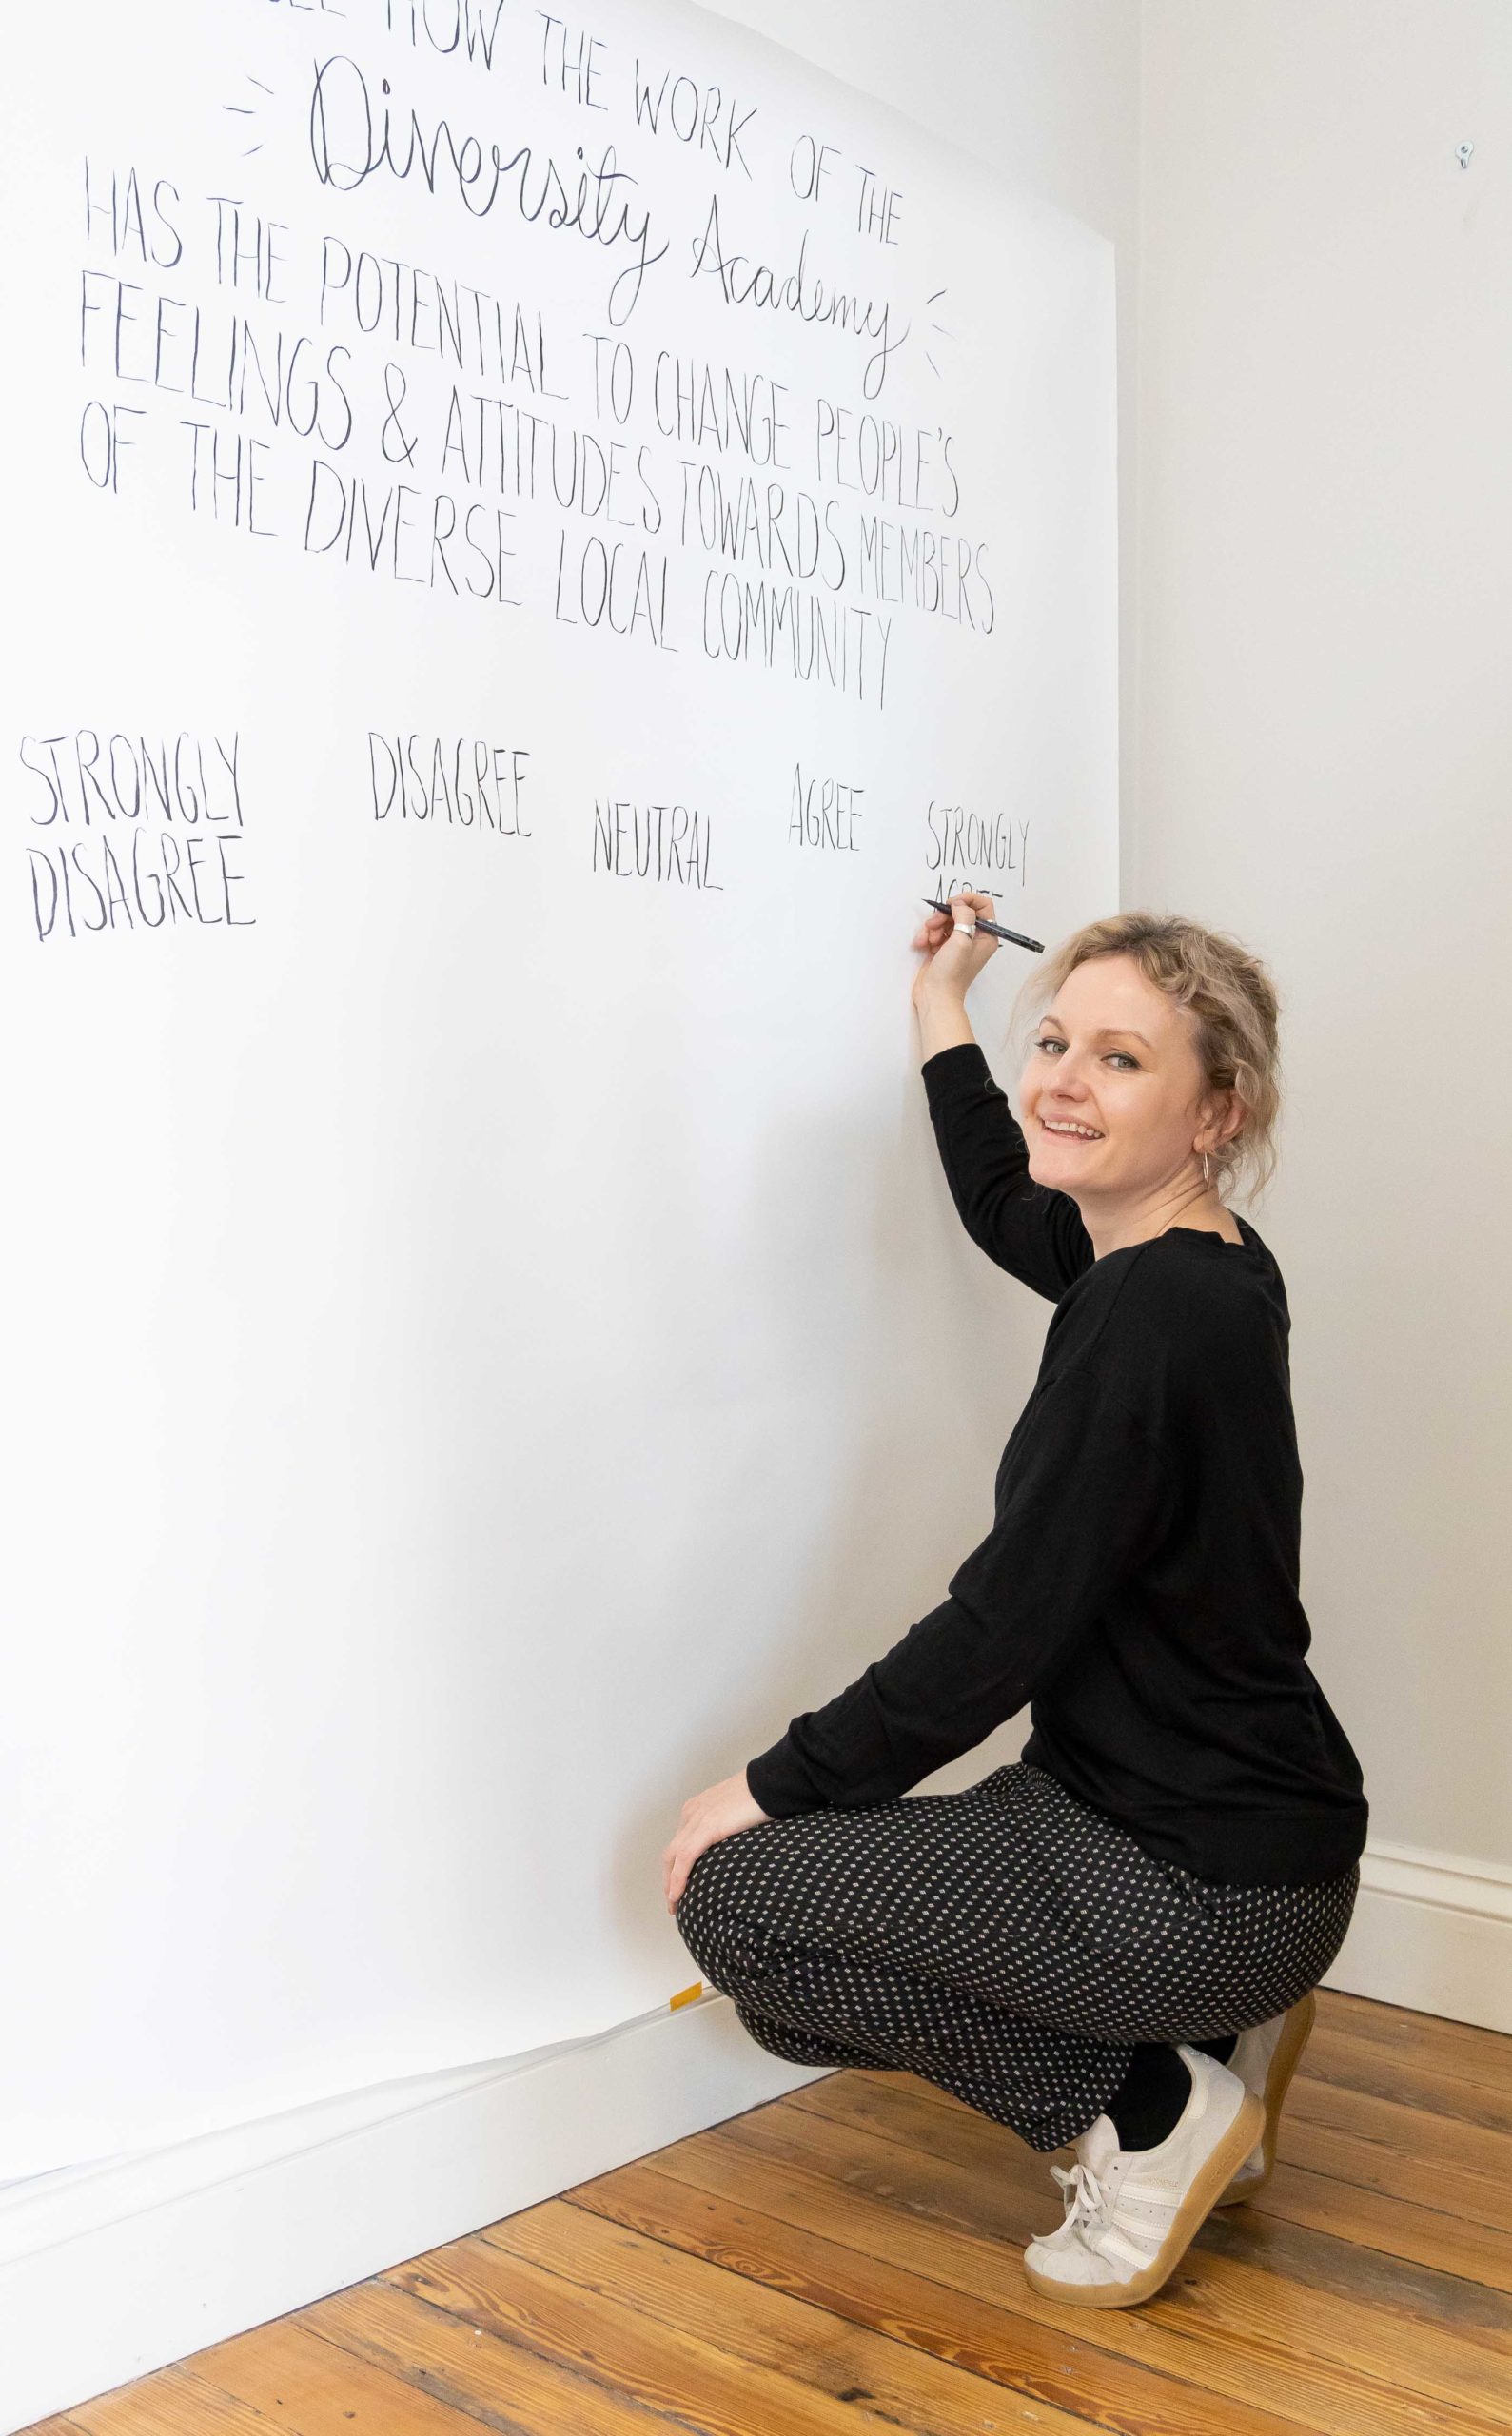 HOW THE WORK OF THE
Diversity Academy
HAS THE POTENTIAL TO CHANGE PEOPLE'S
FEELINGS & ATTITUDES TOWARDS MEMBERS
OF THE DIVERSE LOCAL COMMUNITY
STRONGLY DISAGREE
DISAGREE
NEUTRAL
AGREE
STRONGLY AGREE